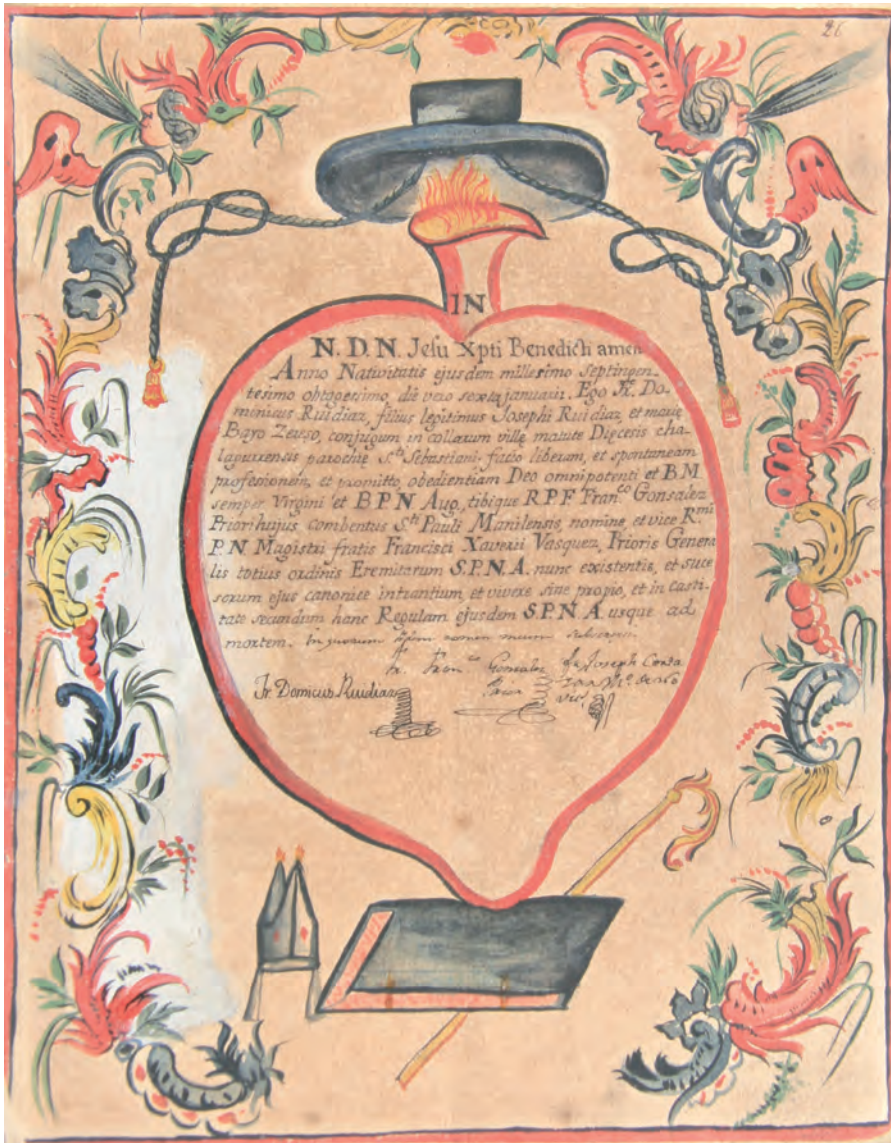 26
IN
N. D. N. Jesu Xpti Benedicti amen
Anno Nativitatis ejusdem millesimo septingen-
tesimo obtagesimo, die vero sexta januarii. Ego Fr. Do-
minicus Ruidiaz, filius legitimus Josephi Ruidiaz et marie
Bayo Zenso, conjugum incollarum ville matute Diecesis cha-
lagurrensis parochie Sti Sebastiani, facio liberam, et spontaneam
professionem, et promitto obedientiam Deo omnipotenti et B M
semper Virgini et B P N Aug. tibique R P F Franco Gonsalez
Priori hujus combentus Sti Pauli Manilensis, nomine, et vice Rmi
P. N Magistri fratis Francisci Xaverii Vasquez, Prioris Genera
lis totius ordinis Eremitarum S. P. N. A. nunc existentis, et suce
sorum ejus canonice intrantium, et vivere sine propio, et in casti
tate secundum hanc Regulam ejusdem S. P. N A usque ad
mortem. In quorum fidem nomen meum
fr. Franco Gonzalez fr Joseph
Fr. Domicus Ruidiaz Prior